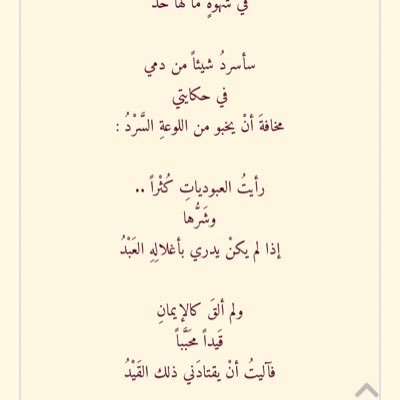 في شهوةٍ ما لها حدُّ
سأسردُ شيئاً من دمي
في حكايتي
مخافةَ أنْ يخبو من اللوعةِ السَّرْدُ :
رأيتُ العبودياتِ كُثْراً ..
وشَرُّها
إذا لم يكنْ يدري بأغلالِهِ العَبْدُ
ولم ألقَ كالإيمانِ
قَيداً محَبَّباً
فآليتُ أنْ يقتادَني ذلك القَيْدُ